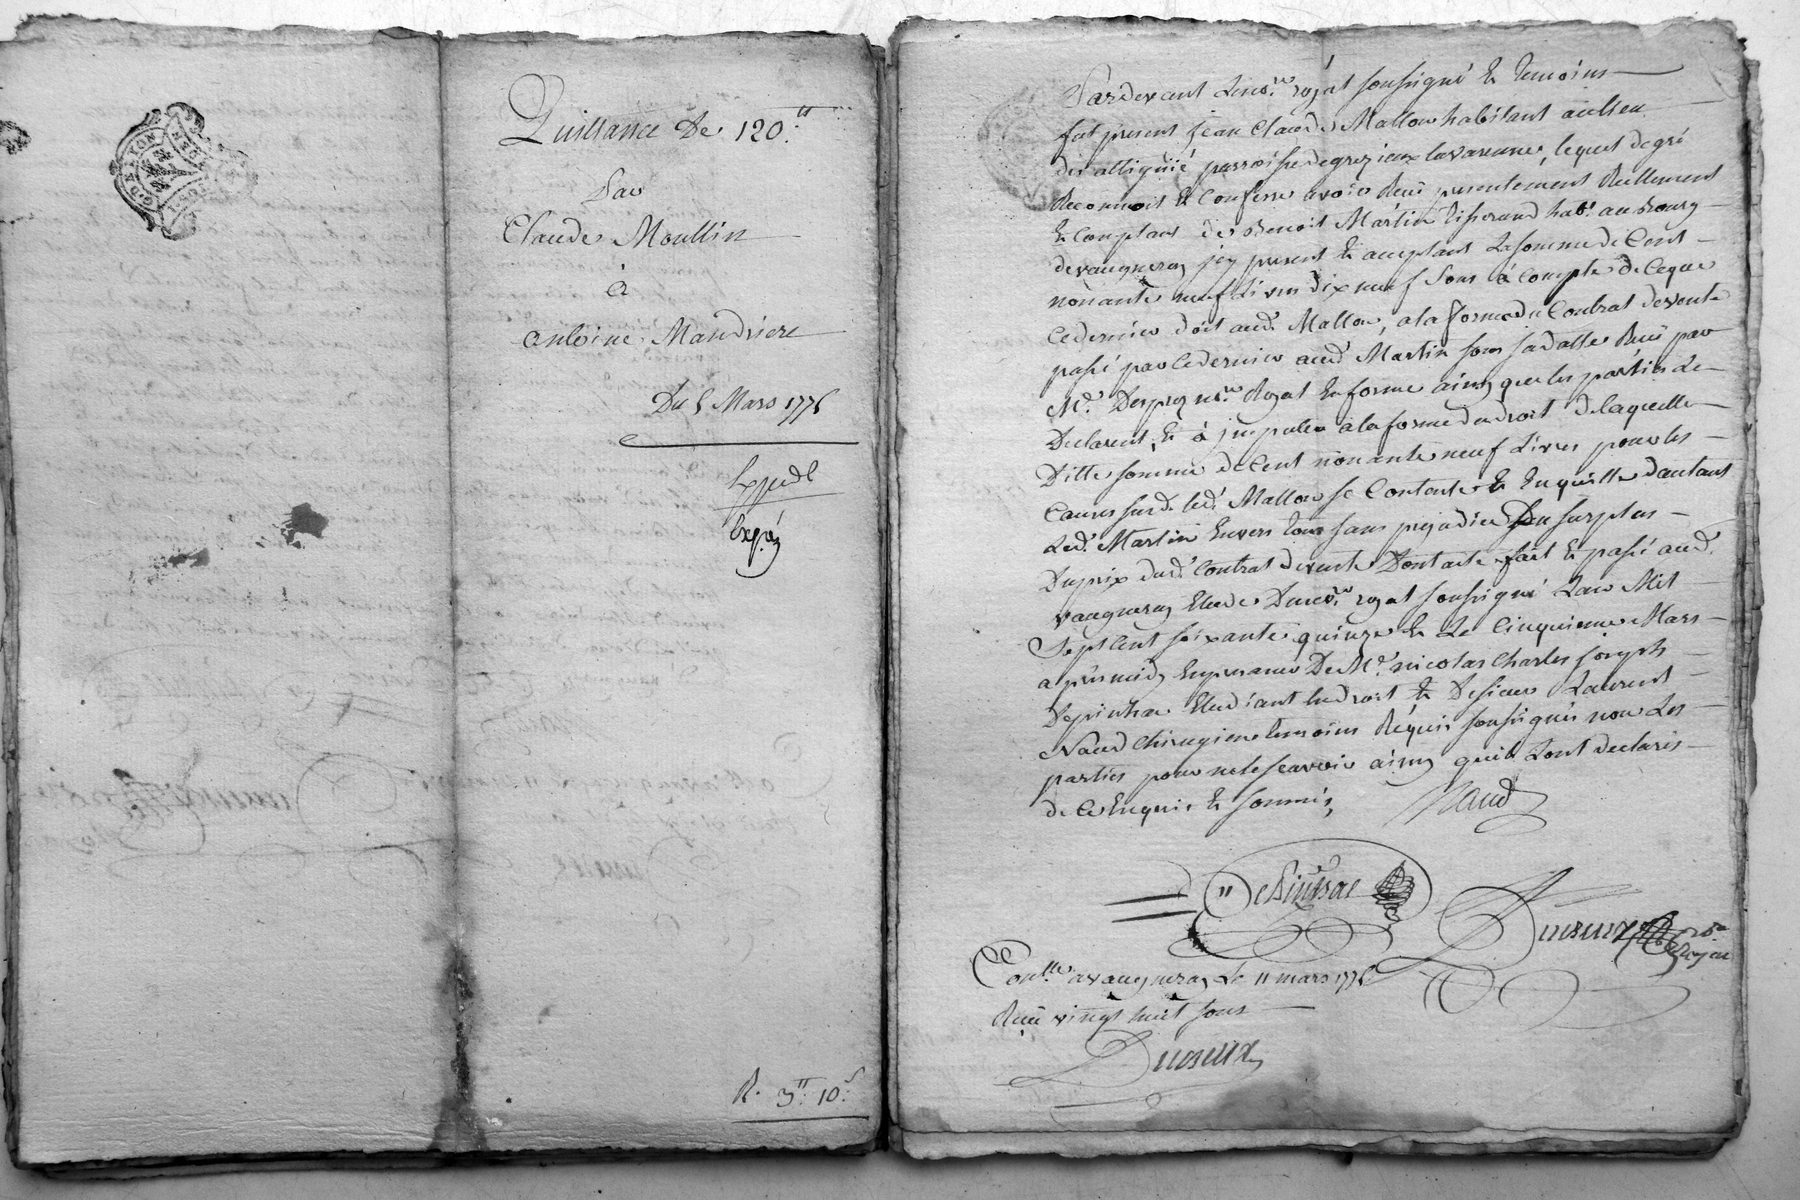 G. DE LYON
Quittance De 120.tt
Par
Claude Moullin
à
antoine Mandriere
Du 5 Mars 1775
Expedé
R. 3.tt 10.s
Pardevant Le no.re royal soussigné Et temoins
fut present jean Claude Mallou habitant au lieu
de paroisse de grezieux la varenne, lequel de gré
Reconnoit Et Confesse avoir Reçu presentement Reellement
Et Comptant de Benoit Martin tisserand hab.t au Bourg
de vaugneray jcy present Et acceptant La somme de Cent
nonante neuf Livres dix neuf Sous à Compte de Ceque
Ce dernier doit aud.t Mallou, a la forme du Contrat de vente
passé par Ce dernier aud.t Martin sous sa datte Reçu par
M.e no.re Royal En forme ainsy que les parties Le
Declarent, Et à jmputer a la forme du droit De laquelle
Ditte somme de Cent nonante neuf Livres pour les
Causes susd. led.t Mallou se Contente Et En quitte d'autant
Led.t Martin Envers tous sans prejudice Du surplus
Du prix dud.t Contrat de vente Dont acte fait Et passé aud.t
vaugneray Etude Du no.re royal soussigné L'an Mil
Sept Cent soixante quinze Et Le Cinquieme Mars
apres midy En presence De M.e nicolas Charles joseph
Etudiant En droit Et De sieur Laurent
Naud Chirugien temoins Requis soussignés non Les
parties pour ne le scavoir ainsy qu'ils L'ont declarés
de Ce Enquis Et sommés,
Naud
Con.llé a vaugneray Le 11 mars 1775
Reçu vingt huit sous